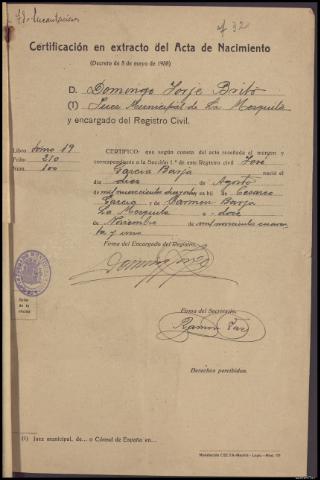 nº 32
Certificación en extracto del Acta de Nacimiento
(Decreto de 8 de mayo de 1938)
D. Domingo Jorje Brito
(1) Juez Municipal de La Mezquita
y encargado del Registro Civil.
Libro tomo 19
Folio 210
Núm. 100
CERTIFICO: que según consta del acta reseñada al margen y
correspondiente a la Sección 1.ª de este registro civil José
García Barja nació el
día diez de Agosto
de mil novecientos hijo de Cesareo
García y de Carmen Barja
La Mezquita a doce
de Noviembre de mil novecientos cuaren-
ta y uno
Firma del Encargado del Registro,
Domingo Jorje
Sello
de la
oficina
Firma del Secretario,
Ramon Paz
Derechos percibidos.
(1) Juez municipal, de... o Cónsul de España en...